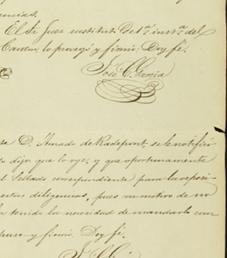 El Sr Juez sustituto del 1er inst.a del
Canton lo proveyó y firmó. Doy fé.
José C. Garcia
D. Amado de Radepont, se le notificó
dijo que lo oye; y que oportunamente
el Sellado correspondiente para la reposi
estas diligencias, pues en motivo de no
ha tenido la necesidad de mandarlo con
puso y firmó. Doy fé.